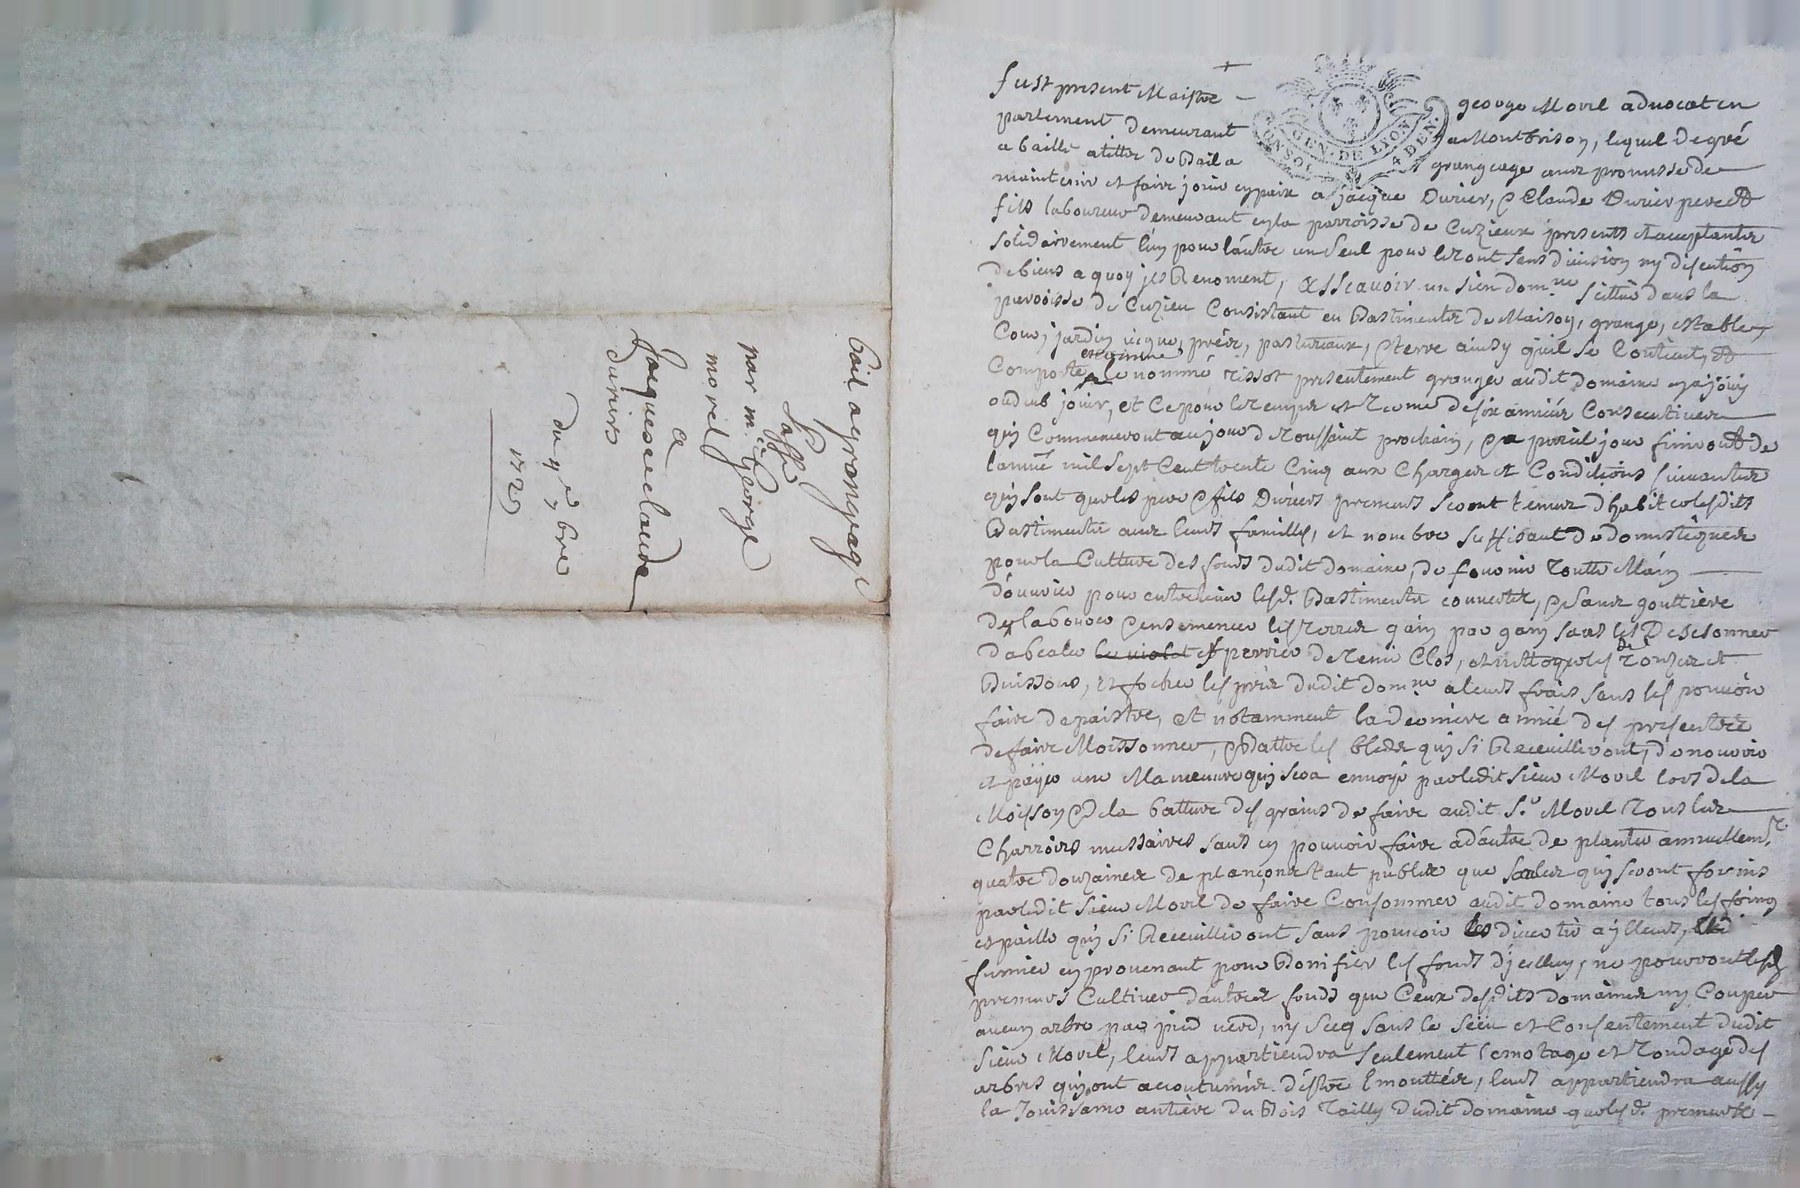 bail a grangeage
passé
par mre George
morel
a
Jacques et claude
duriers
du 9e 7bre
1729
fust present Maistre george Morel advocat en
parlement demeurant a Montbrison, lequel de gré
a baillé a tittre de Bail a grangeage avec promesse de
maintenir et faire jouir en paix a jacque Durier, & Claude Durier pere et
fils laboureur demeurant en la parroisse de Cuzieux presents et acceptants
solidairement l'un pour l'autre un seul pour le tout sans division ny discution
de biens a quoy ils Renoncent, assçavoir un sien domne scittué dans la
parroisse de Cuzieu Consistant en Bastiments de Maison, grange, estables,
Cour, jardin, prés, pasturaux, & terre ainsy quil se Contient, et
Comporte et comme le nommé tissot presentement granger audit domaine en a jouy
ou deub jouir, et Ce pour le temps et terme de six années Consecutives
quy Commenceront au jour de toussaint prochain, & a pareil jour finiront de
l'année mil sept Cent trente Cinq aux Charges et Conditions suivantes
quy sont que les pere & fils Duriers preneurs seront tenus d'habiter lesdits
Bastiments avec leurs familles, et nombre suffisant de domestiques
pour la Culture des fonds dudit domaine, de fournir toutte Main
d'ouvrier pour entretenir lesd. Bastiments couverts, & sans gouttière
de labourer & ensemencer les terres gain par gain sans les Desesonner
de tenir Clos, et nettoyer les de ronzes et
Buissons, et faucher les prés dudit domne a leurs frais sans les pouvoir
faire depaistre, et notamment la derniere année des presentes
de faire Moissonner, & Battre les bleds quy si Receuilliront, de nourrir
et payer une Maneuvre quy sera envoyé par ledit sieur Morel lors de la
Moisson & de la batture des grains de faire audit Sr Morel tous les
Charrois nessaires sans en pouvoir faire a d'autre de planter annuellemt
quatre douzaines de plançons tant publes que saules quy seront fornis
par ledit sieur Morel de faire Consommer audit domaine tous les foins
et paille quy si Receuilliront sans pouvoir les divertir ailleurs,
fumier en provenant pour Bonifier les fonds d'icelluy, ne pourront lesd
preneurs Cultiver d'autres fonds que Ceux desdits domaines ny Couper
aucun arbre par pied verd, ny secq sans le sceu et Consentement dudit
sieur Morel, leurs appartiendra seulement l'emotage et tondage des
arbres quy ont accoutumés d'estre emottés, leurs appartiendra aussy
la Jouissance antiere du Bois tailly dudit domaine que lesd. preneurs